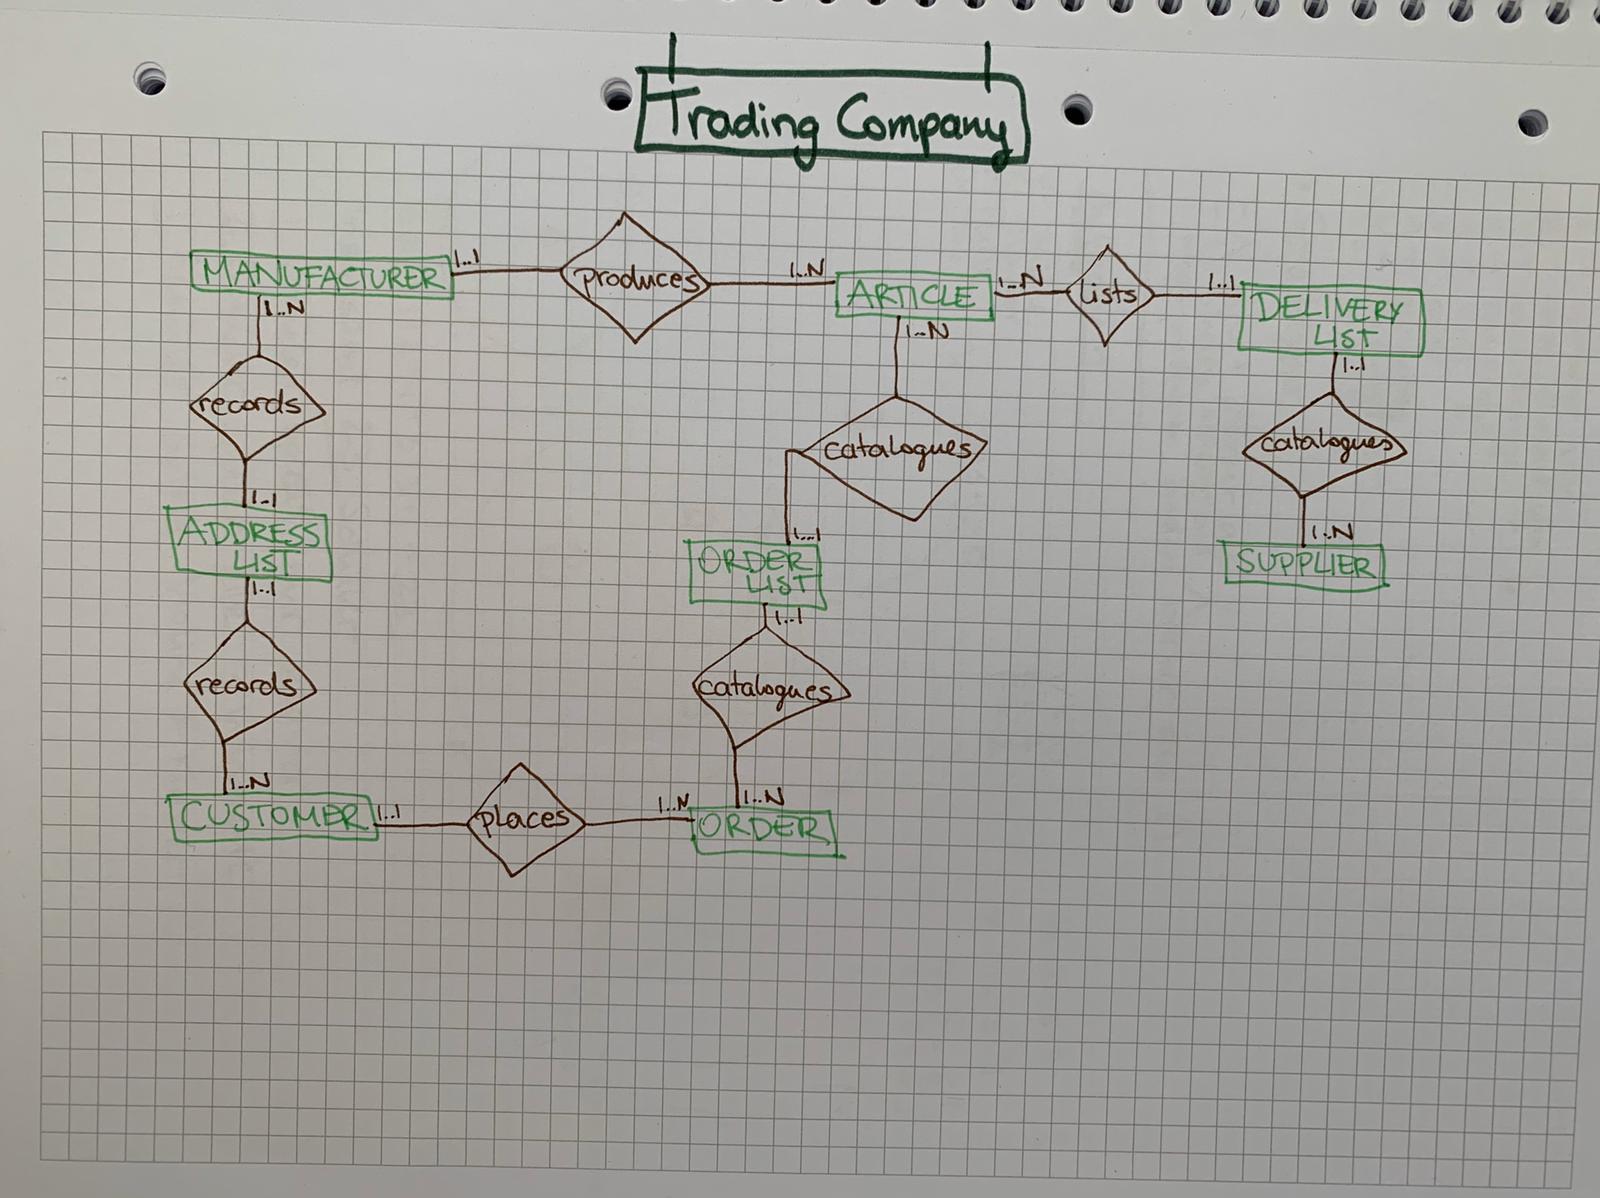 Trading Company
MANUFACTURER
1..1
produces
1..N
ARTICLE
1..N
lists
1..1
DELIVERY
LIST
1..N
records
1..1
ADDRESS
LIST
1..1
records
1..N
CUSTOMER
1..1
places
1..N
ORDER
1..N
catalogues
1..1
ORDER
LIST
1..1
catalogues
1..N
1..1
catalogues
1..N
SUPPLIER